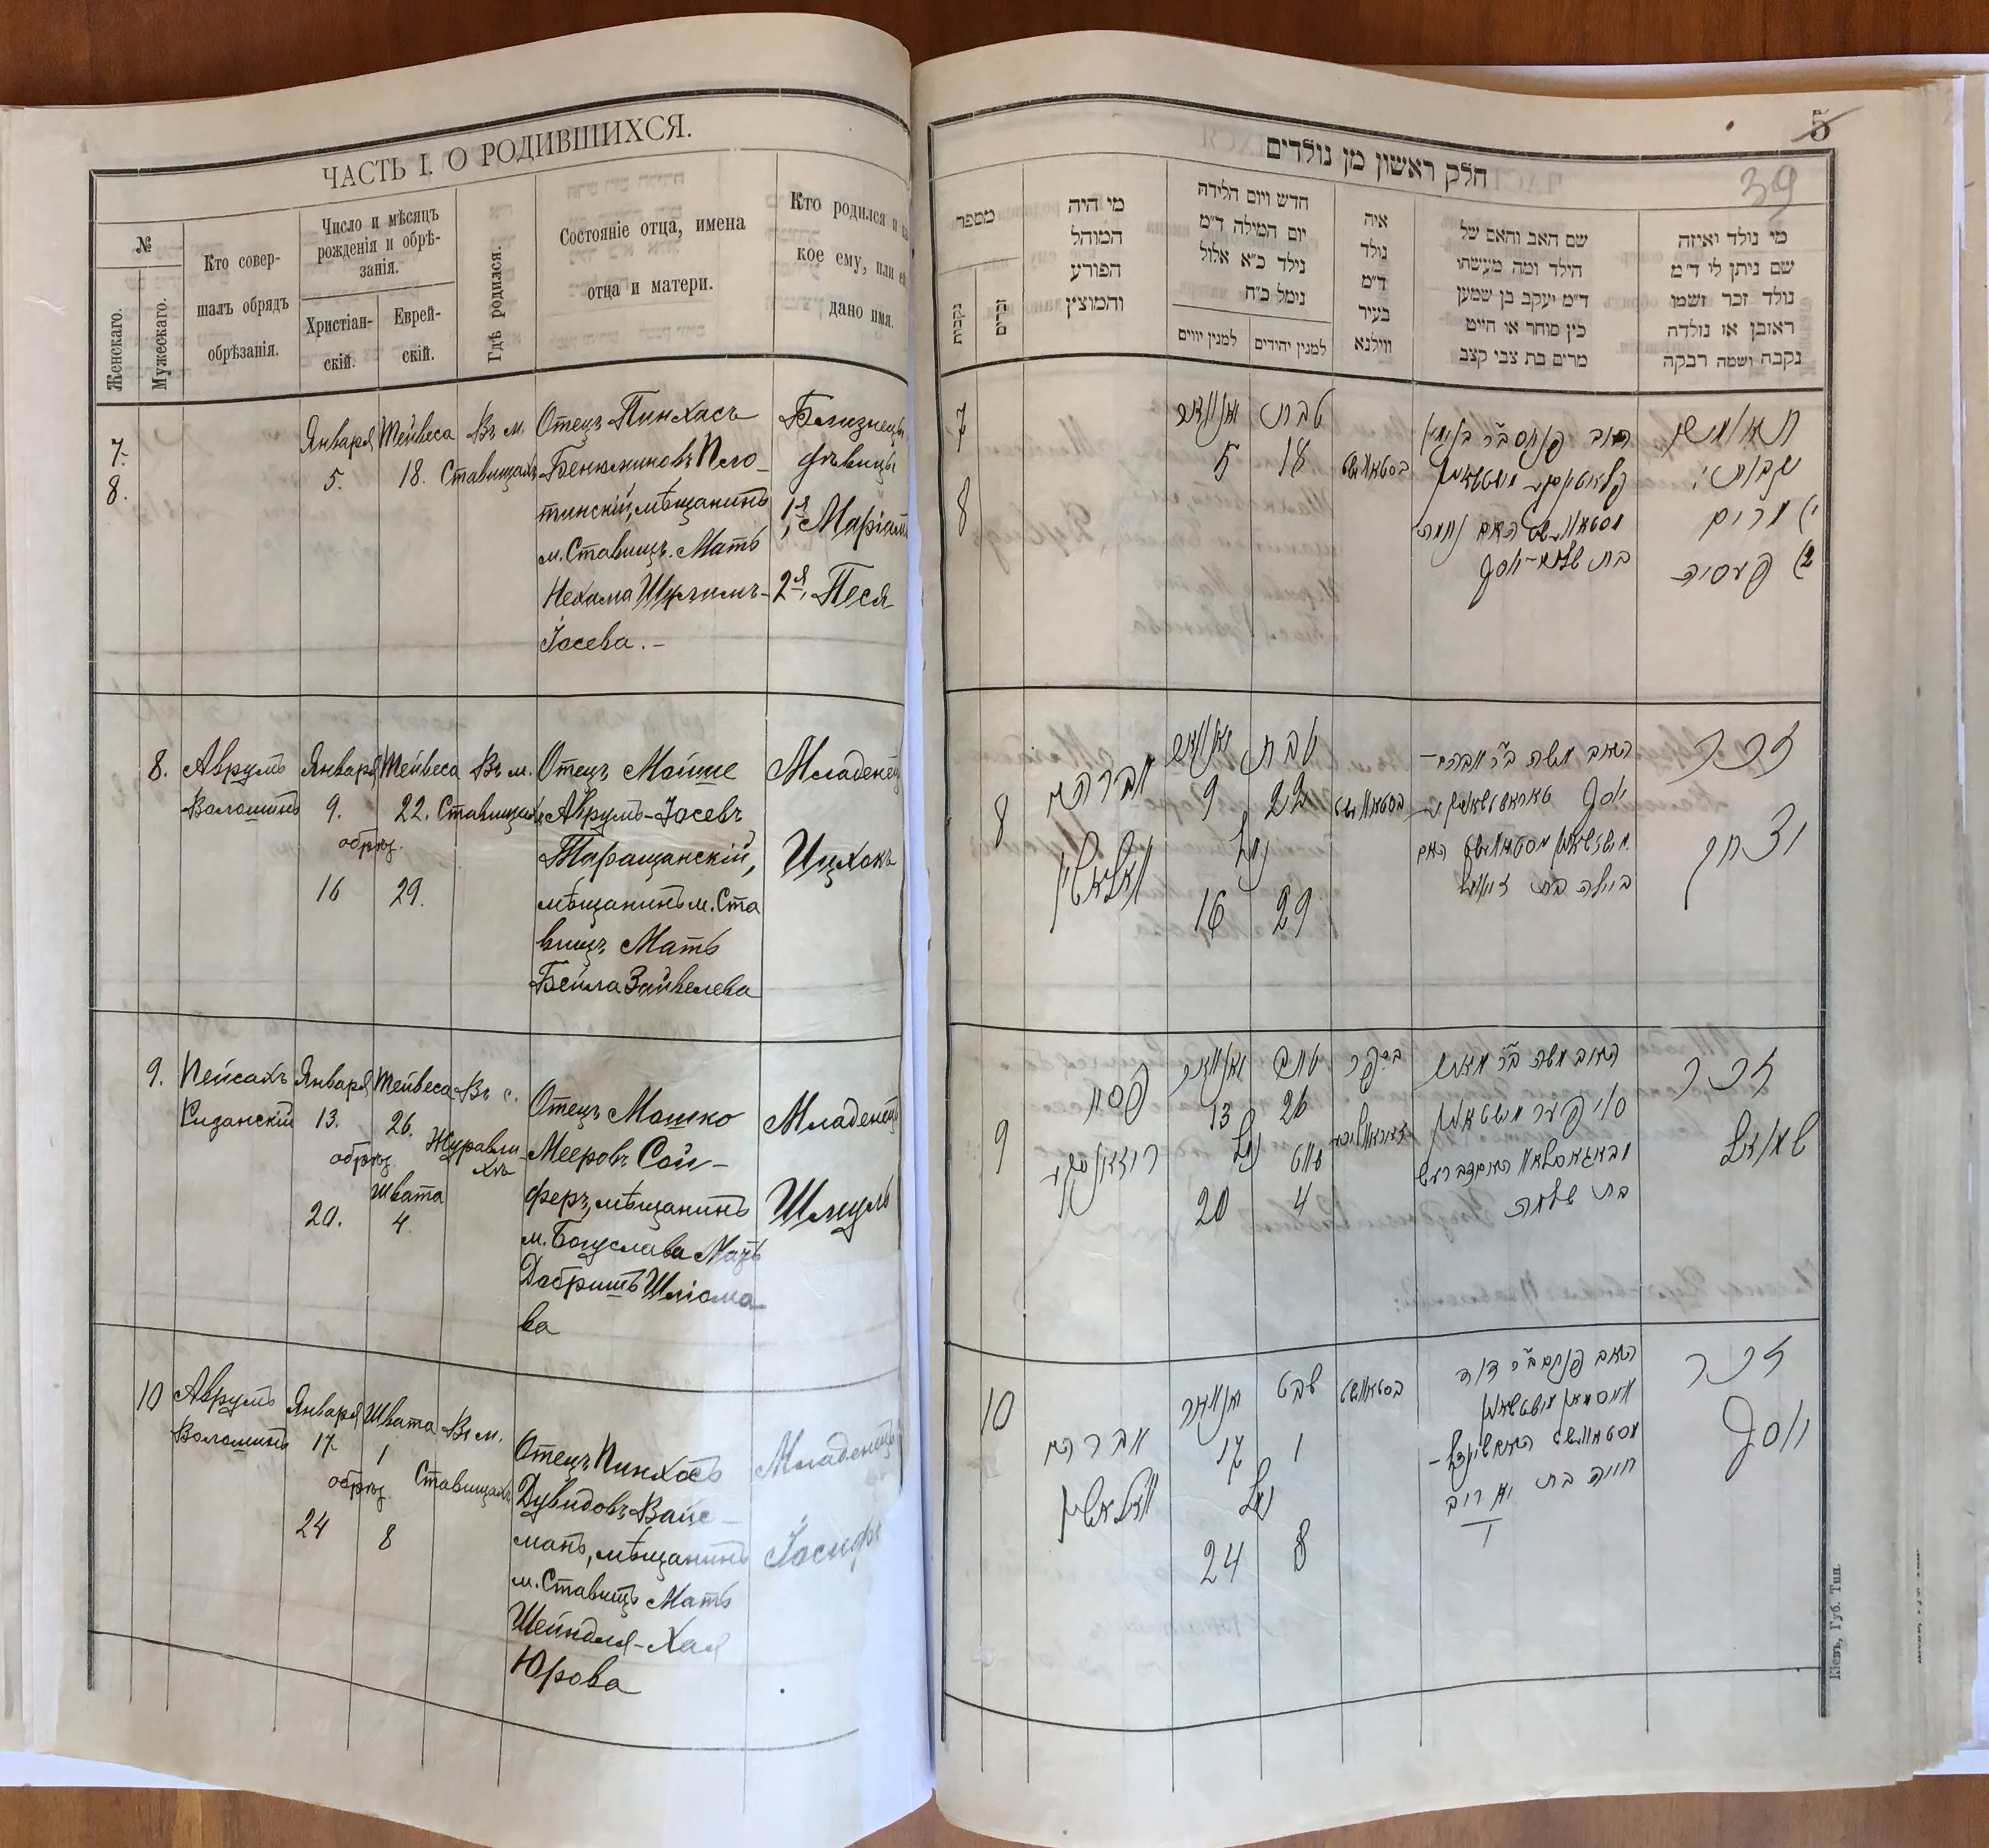 ЧАСТЬ I. О РОДИВШИХСЯ.
№
Женскаго.
Мужескаго.
Кто совер-
шалъ обрядъ
обрѣзанія.
Число и мѣсяцъ
рожденія и обрѣ-
занія.
Христіан-
скій.
Еврей-
скій.
Гдѣ родился.
Состояніе отца, имена
отца и матери.
Кто родился и ка
кое ему, или ей
дано имя.
7.
8.
Января
5.
Тейвеса
18.
Въ м.
Ставищахъ
Отецъ Пинхасъ
Бенюминовъ Пло-
тинскій, мѣщанинъ
м. Ставищъ. Мать
Нехама Шулимъ-
Іосева.-
Близнецы
дѣвицы
1я, Маріам
2я, Песя
8.
Аврумъ
Волошинъ
Января
9.
обрѣз.
16
Тейвеса
22.
29.
Въ м.
Ставищахъ
Отецъ Мойше
Аврумъ-Іосевъ
Таращанскій,
мѣщанинъ м. Ста
вищъ Мать
Бейла Зайвелева
Младенец
Ицхокъ
9.
Пейсахъ
Ризанскій
Января
13.
обрѣз.
20.
Тейвеса
26.
Швата
4.
Въ с.
Журавли-
хъ
Отецъ Мошко
Мееровъ Сой-
феръ, мѣщанинъ
м. Богуслава Мать
Добришъ Шліомо-
ва
Младенец
Шмуль
10
Аврумъ
Волошинъ
Января
17
обрѣз.
24
Швата
1
8
Въ м.
Ставищахъ
Отецъ Пинхосъ
Дувидовъ Вайс-
манъ, мѣщанинъ
м. Ставищъ Мать
Шейндля-Хая
Юрова
Младенецъ
Іосифъ
5
39
חלק ראשון מן נולדים
מספר
נקבות
זכרים
מי היה
המוהל
הפורע
והמוצץ
חדש ויום הלידה
יום המילה ד"מ
נילד כ"א אלול
נימל כ"ח
למנין יווים
למנין יהידים
איה
נולד
ד"מ
בעיר
ווילנא
שם האב והאם של
הילד ומה מעשתו
ד"מ יעקב בן שמען
כין סוחר או חייט
מרים בת צבי קצב
מי נולד ואיזה
שם ניתן לי ד"מ
נולד זכר ושמו
ראובן או נולדה
נקבה ושמה רבקה
7
8
יאנוואר
5
טבת
18
תאומים
נקבות:
1) מרים
2) פעסיה
8
אברהם
וואלאשין
יאנוואר
9
נמול
16
טבת
22
29
זכר
יצחק
9
פסח
יאנוואר
13
נמול
20
טבת
26
שבט
4
האב משה ב"ר מאיר
סויפער
בת שלמה
זכר
שמואל
10
אברהם
וואלאשין
יאנוואר
17
נמול
24
שבט
1
8
האב פנחס ב"ר דוד
זכר
יוסף
Кіевъ, Губ. Тип.